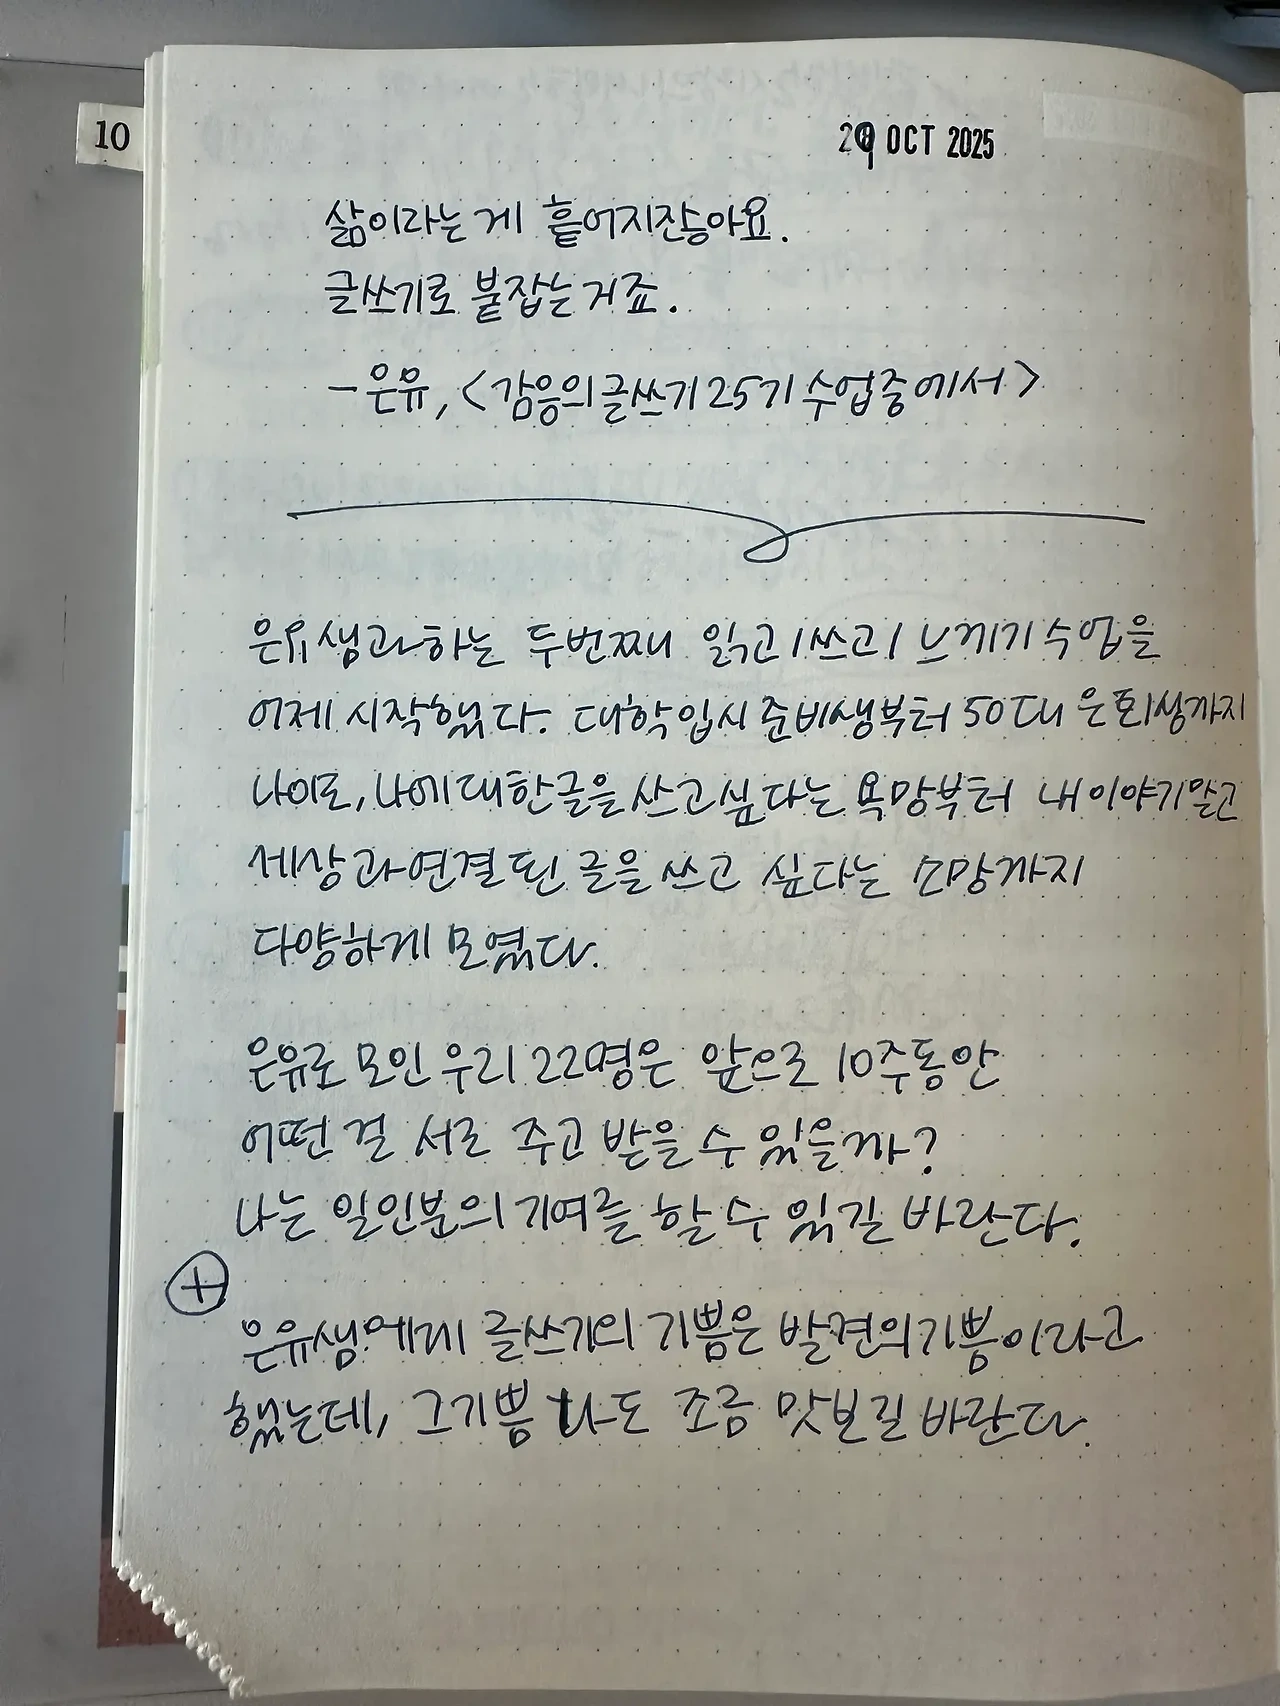 10
29 OCT 2025
삶이라는 게 흩어지잖아요.
글쓰기로 붙잡는 거죠.
- 은유, <감응의 글쓰기 25기 수업 중에서>
은유샘과 하는 두번째 읽고/쓰고/느끼기 수업을
어제 시작했다. 대학 입시 준비생부터 50대 은퇴생까지
나이로, 나에 대한 글을 쓰고 싶다는 욕망부터 내 이야기 말고
세상과 연결된 글을 쓰고 싶다는 소망까지
다양하게 모였다.
은유로 모인 우리 22명은 앞으로 10주동안
어떤 걸 서로 주고 받을 수 있을까?
나는 일인분의 기여를 할 수 있길 바란다.
+
은유샘에게 글쓰기의 기쁨은 발견의 기쁨이라고
했는데, 그 기쁨 나도 조금 맛보길 바란다.